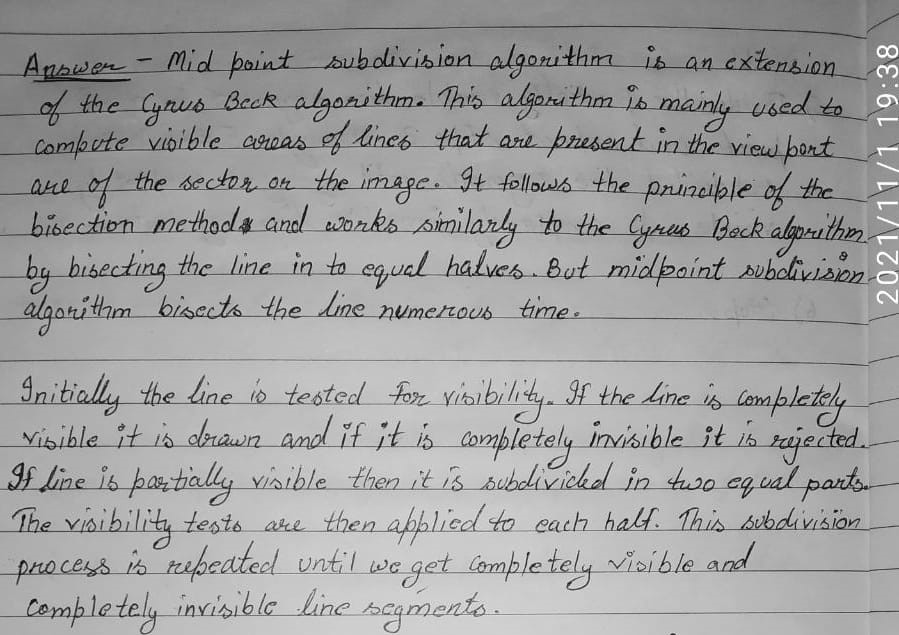 Answer - Mid point subdivision algorithm is an extension
of the Cyrus Beck algorithm. This algorithm is mainly used to
compute visible areas of lines that are present in the view port
are of the sector or the image. It follows the principle of the
bisection method and works similarly to the Cyrus Beck algorithm
by bisecting the line in to equal halves. But midpoint subdivision
algorithm bisects the line numerous time.
Initially the line is tested for visibility. If the line is completely
visible it is drawn and if it is completely invisible it is rejected.
If line is partially visible then it is subdivided in two equal parts.
The visibility tests are then applied to each half. This subdivision
process is repeated until we get completely visible and
completely invisible line segments.
2021/11/1 19:38